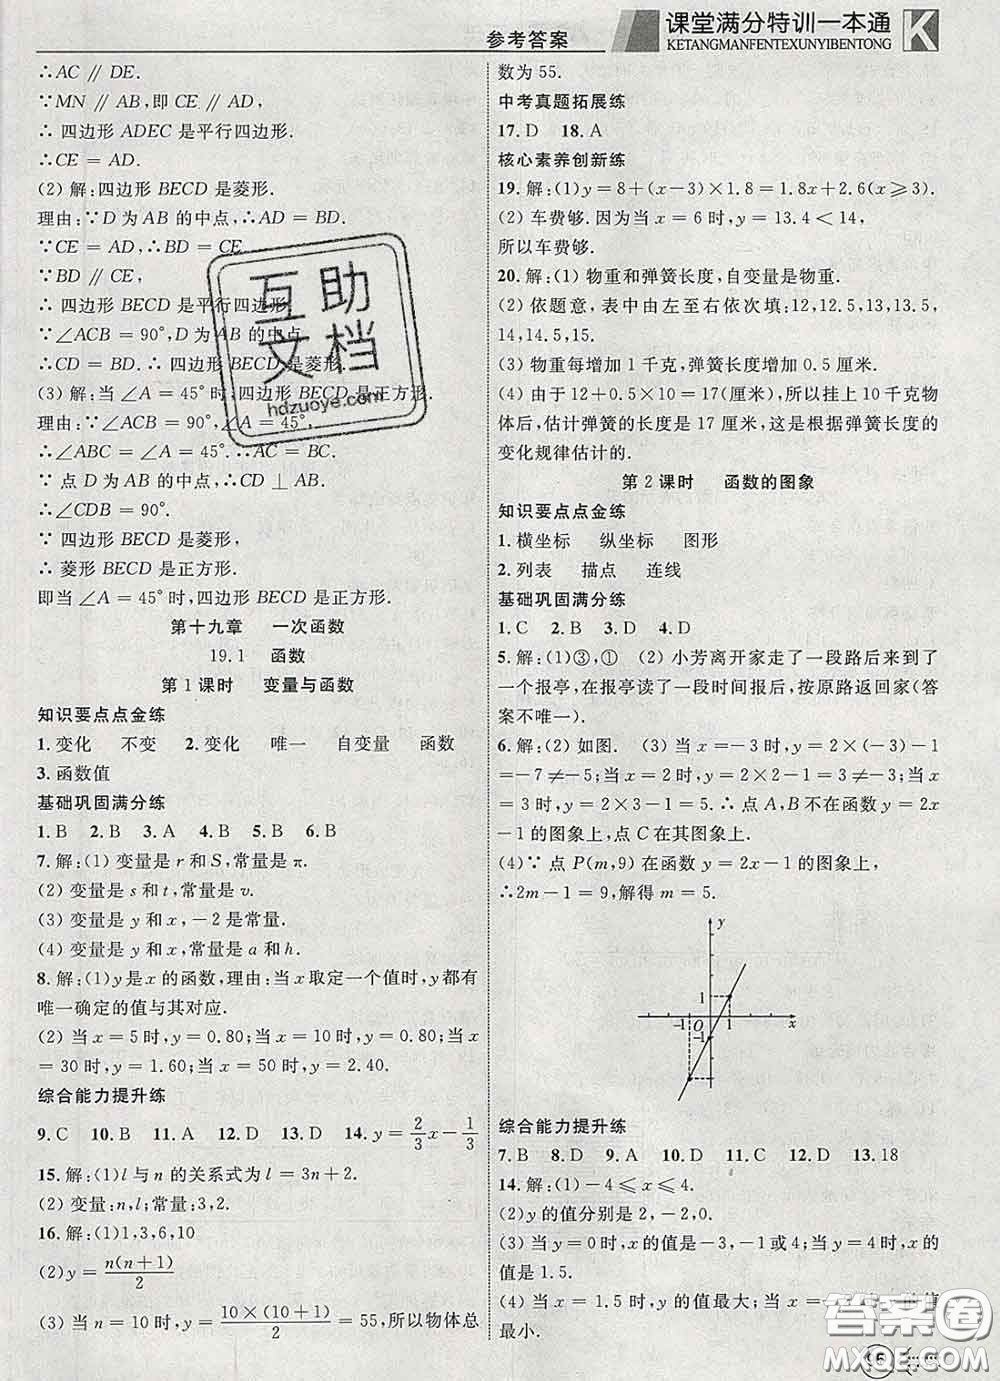 参考答案
课堂满分特训一本通
KETANGMANFENTEXUNYIBENTONG
K
∴AC ∥ DE.
∵MN ∥ AB,即 CE ∥ AD,
∴ 四边形 ADEC 是平行四边形.
∴CE = AD.
(2) 解:四边形 BECD 是菱形.
理由:∵D 为 AB 的中点,∴AD = BD.
∵CE = AD,∴BD = CE.
∵BD ∥ CE,
∴ 四边形 BECD 是平行四边形.
∵∠ACB = 90°,D 为 AB 的中点,
∴CD = BD.∴ 四边形 BECD 是菱形.
(3) 解:当 ∠A = 45° 时,四边形 BECD 是正方形.
理由:∵∠ACB = 90°,∠A = 45°,
∴∠ABC = ∠A = 45°.∴AC = BC.
∵ 点 D 为 AB 的中点,∴CD ⊥ AB.
∴∠CDB = 90°.
∵ 四边形 BECD 是菱形,
∴ 菱形 BECD 是正方形.
即当 ∠A = 45° 时,四边形 BECD 是正方形.
第十九章 一次函数
19.1 函数
第 1 课时 变量与函数
知识要点点金练
1. 变化 不变 2. 变化 唯一 自变量 函数
3. 函数值
基础巩固满分练
1. B 2. B 3. A 4. B 5. B 6. B
7. 解:(1) 变量是 r 和 S,常量是 π.
(2) 变量是 s 和 t,常量是 v.
(3) 变量是 y 和 x,-2 是常量.
(4) 变量是 y 和 x,常量是 a 和 h.
8. 解:(1)y 是 x 的函数,理由:当 x 取定一个值时,y 都有
唯一确定的值与其对应.
(2) 当 x = 5 时,y = 0.80;当 x = 10 时,y = 0.80;当 x
= 30 时,y = 1.60;当 x = 50 时,y = 2.40.
综合能力提升练
9. C 10. B 11. A 12. D 13. D 14. y = 2/3 x - 1/3
15. 解:(1)l 与 n 的关系式为 l = 3n + 2.
(2) 变量:n,l;常量:3,2.
16. 解:(1)1,3,6,10
(2)y = n(n + 1)/2
(3) 当 n = 10 时,y = 10 × (10 + 1)/2 = 55,所以物体总
数为 55.
中考真题拓展练
17. D 18. A
核心素养创新练
19. 解:(1)y = 8+(x-3)×1.8 = 1.8x+2.6(x ≥ 3).
(2) 车费够. 因为当 x = 6 时,y = 13.4 < 14,
所以车费够.
20. 解:(1) 物重和弹簧长度,自变量是物重.
(2) 依题意,表中由左至右依次填:12,12.5,13,13.5,
14,14.5,15.
(3) 物重每增加 1 千克,弹簧长度增加 0.5 厘米.
(4) 由于 12+0.5×10 = 17(厘米),所以挂上 10 千克物
体后,估计弹簧的长度是 17 厘米,这是根据弹簧长度的
变化规律估计的.
第 2 课时 函数的图象
知识要点点金练
1. 横坐标 纵坐标 图形
2. 列表 描点 连线
基础巩固满分练
1. C 2. B 3. D 4. D
5. 解:(1)③,① (2) 小芳离开家走了一段路后来到了
一个报亭,在报亭读了一段时间报后,按原路返回家(答
案不唯一).
6. 解:(2) 如图. (3) 当 x =-3 时,y = 2×(-3)-1
=-7 ≠-5;当 x = 2 时,y = 2×2-1 = 3 ≠-3;当 x
= 3 时,y = 2×3-1 = 5.∴ 点 A,B 不在函数 y = 2x
-1 的图象上,点 C 在其图象上.
(4)∵ 点 P(m,9) 在函数 y = 2x-1 的图象上,
∴2m-1 = 9,解得 m = 5.
y
1
-1 O 1 x
-1
综合能力提升练
7. B 8. D 9. A 10. D 11. C 12. D 13. 18
14. 解:(1)-4 ≤ x ≤ 4.
(2)y 的值分别是 2,-2,0.
(3) 当 y=0 时,x 的值是-3,-1 或 4;当 y=3 时,x 的
值是 1.5.
(4) 当 x = 1.5 时,y 的值最大;当 x =- 时,y 的值
最小.
互助文档
hdzuoye.com
答案圈
MXQE.COM